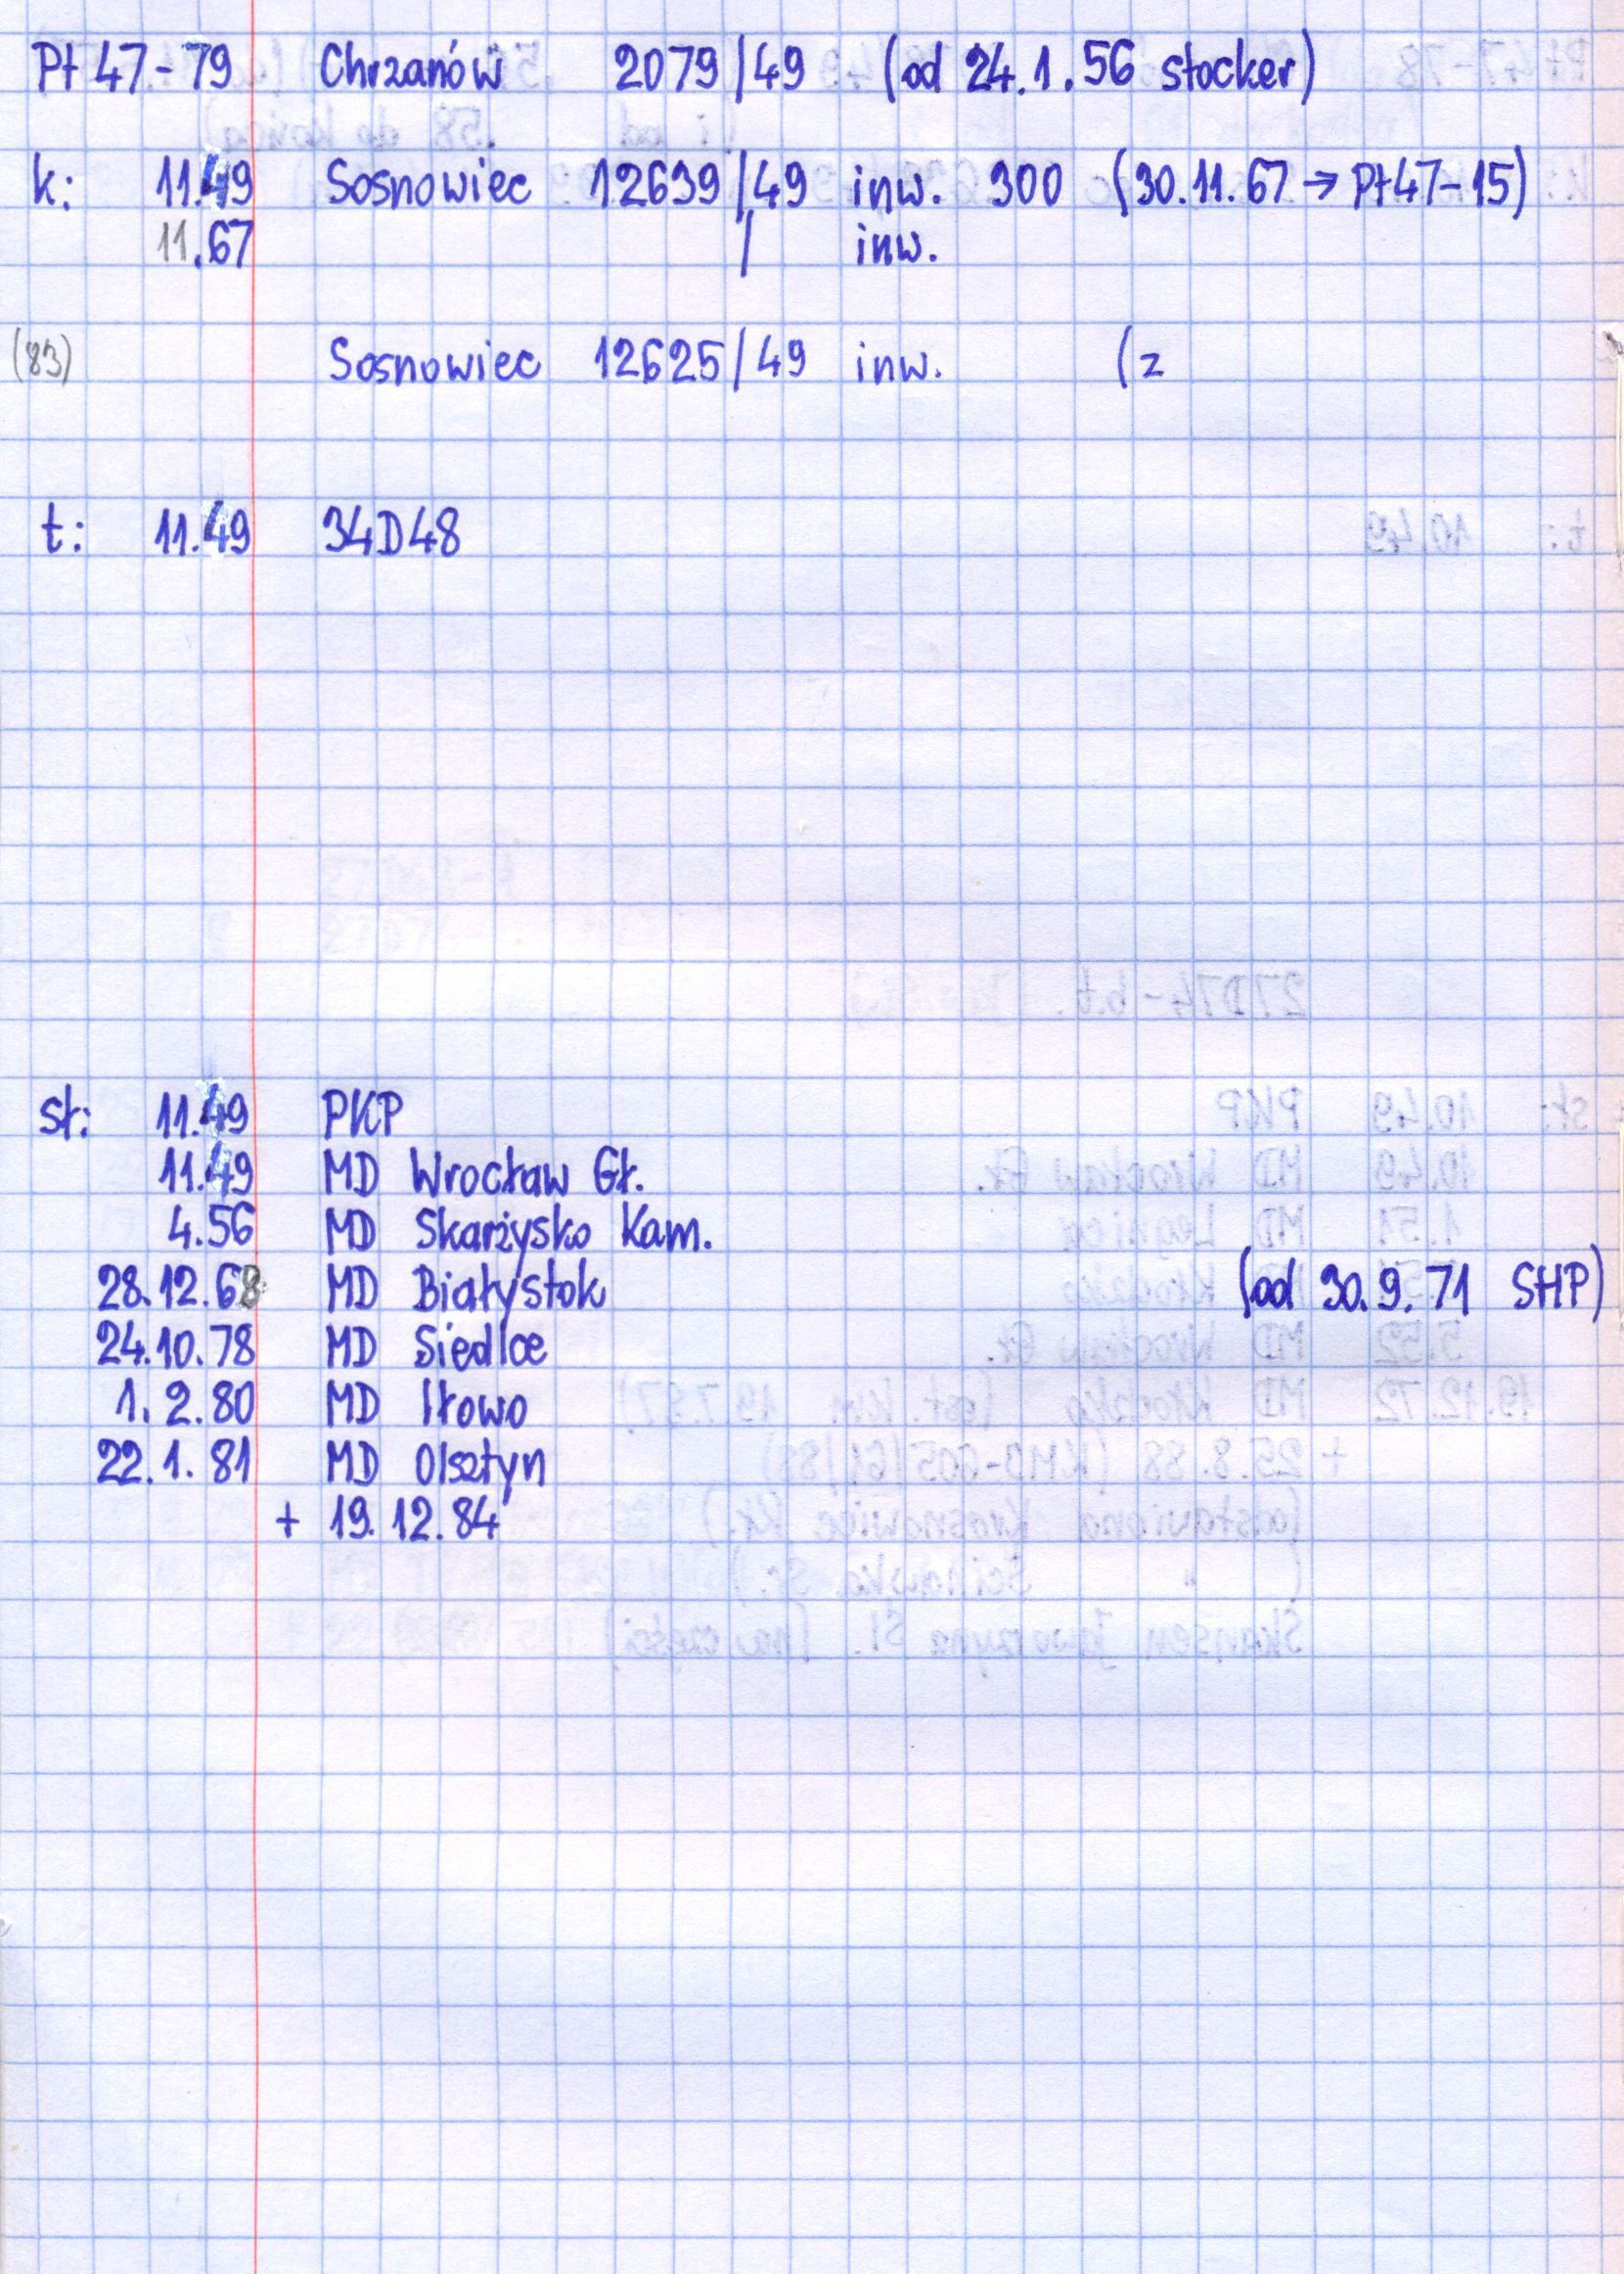 Pt 47-79 Chrzanów 2079/49 (od 24.1.56 stocker)
k: 11.49 Sosnowiec 12639/49 inw. 300 (30.11.67 → Pt47-15)
11.67 / inw.
(83) Sosnowiec 12625/49 inw. (z
t: 11.49 34D48
st: 11.49 PKP
11.49 MD Wrocław Gł.
4.56 MD Skarżysko Kam.
28.12.68 MD Białystok (od 30.9.71 SHP)
24.10.78 MD Siedlce
1.2.80 MD Iłowo
22.1.81 MD Olsztyn
+ 19.12.84